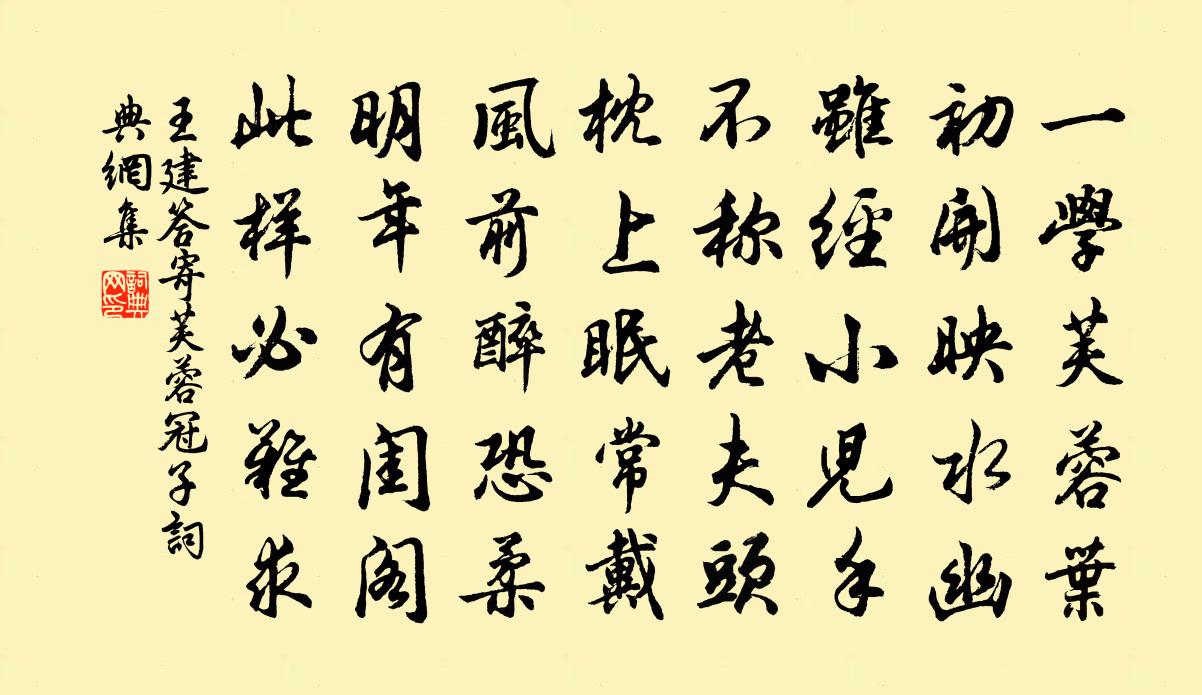 一學芙蓉葉
初開映水幽
雖經小児手
不称老夫頭
枕上眠常戴
風前醉恐柔
明年有閨閣
此样必難求
王建答寄芙蓉冠子詞
典網集
詞典
网印